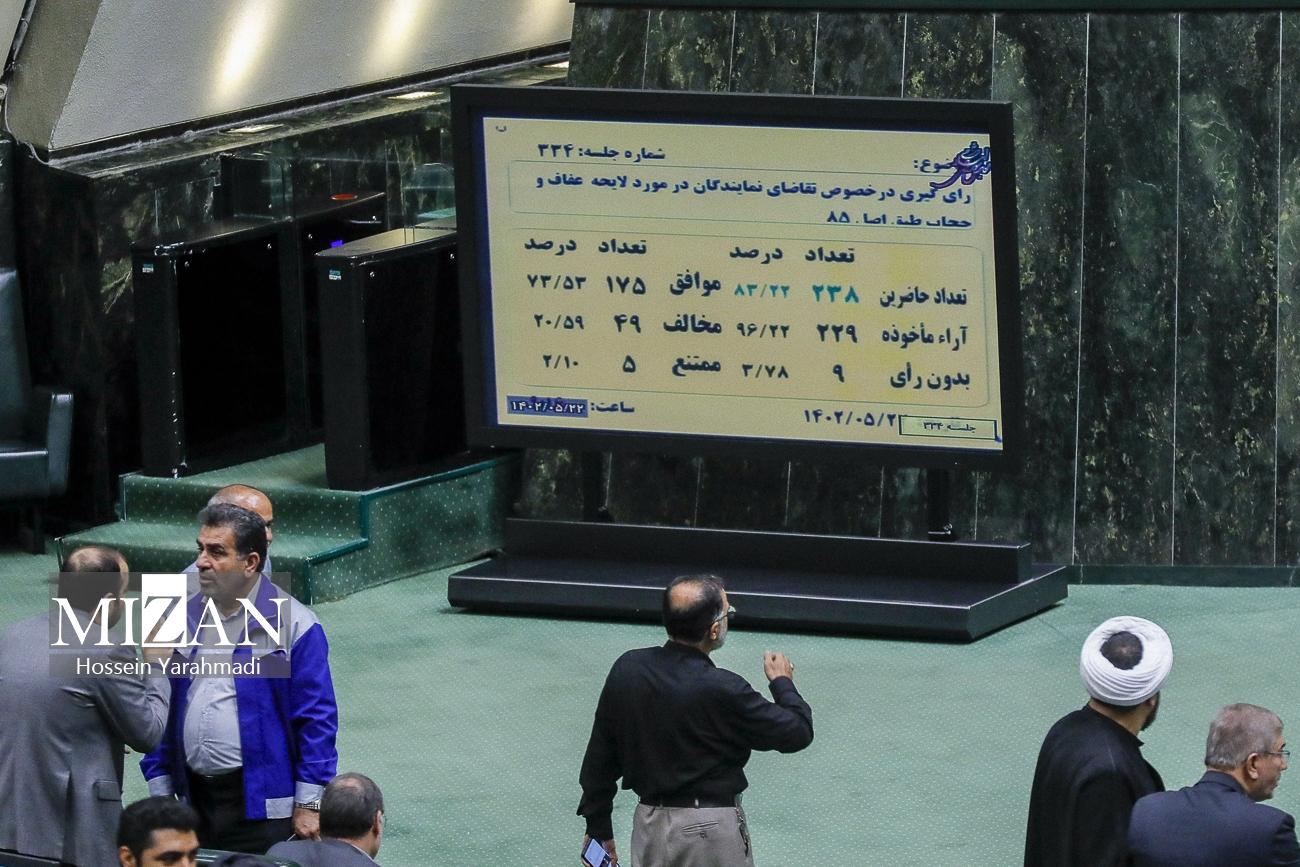 موضوع:
شماره جلسه: ۳۳۴
رای گیری درخصوص تقاضای نمایندگان در مورد لایحه عفاف و
حجاب طبق اصل ۸۵
تعداد درصد تعداد درصد
تعداد حاضرین ۲۳۸ ۸۳/۲۲ موافق ۱۷۵ ۷۳/۵۳
آراء مأخوذه ۲۲۹ ۹۶/۲۲ مخالف ۴۹ ۲۰/۵۹
بدون رأی ۹ ۳/۷۸ ممتنع ۵ ۲/۱۰
۱۴۰۲/۰۵/۲ ساعت: ۱۴۰۲/۰۵/۲۲
جلسه ۳۳۴
MIZAN
Hossein Yarahmadi